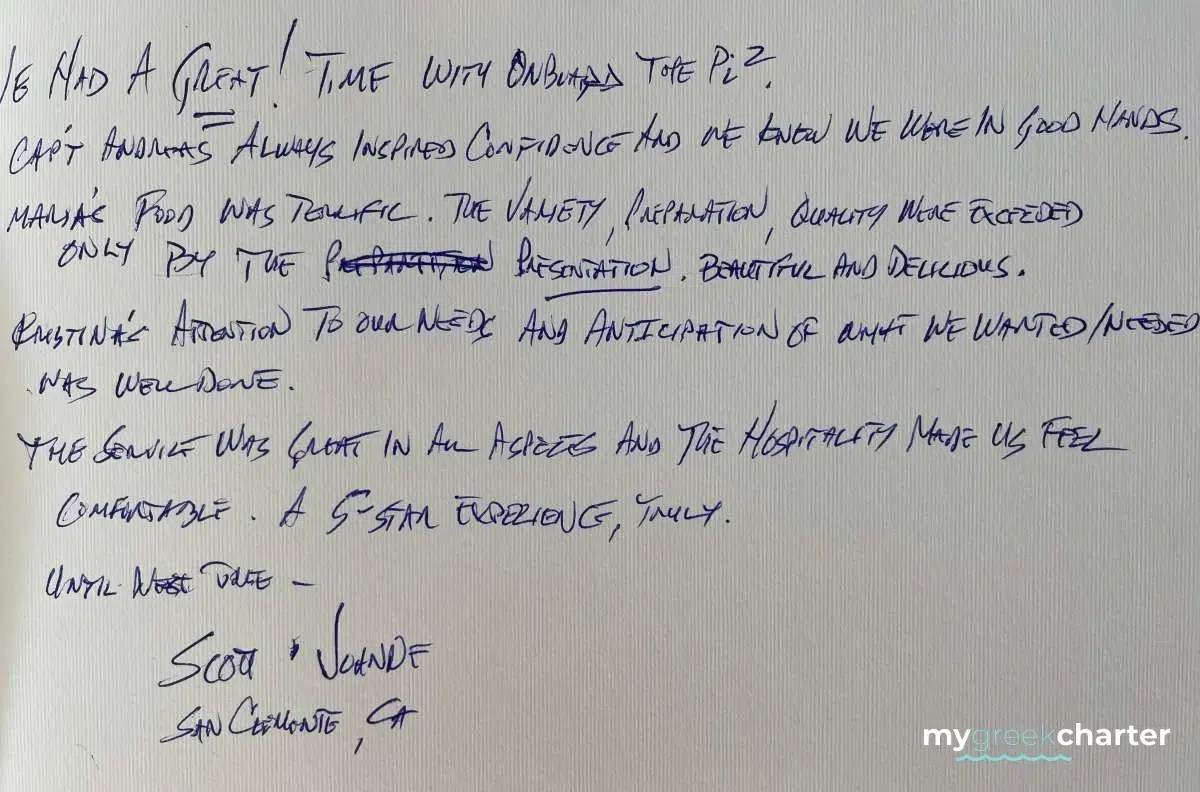 WE HAD A GREAT! TIME WITH ONBOARD THE Pi2.
CAP'T ANDREAS ALWAYS INSPIRED CONFIDENCE AND WE KNEW WE WERE IN GOOD HANDS.
MARIA'S FOOD WAS TERRIFIC. THE VARIETY, PREPARATION, QUALITY WERE EXCEEDED
ONLY BY THE PRESENTATION. BEAUTIFUL AND DELICIOUS.
KRISTINA'S ATTENTION TO OUR NEEDS AND ANTICIPATION OF WHAT WE WANTED/NEEDED
WAS WELL DONE.
THE SERVICE WAS GREAT IN ALL ASPECTS AND THE HOSPITALITY MADE US FEEL
COMFORTABLE. A 5-STAR EXPERIENCE, TRULY.
UNTIL NEXT TIME –
SCOTT
SAN CLEMENTE, CA
mygreekcharter